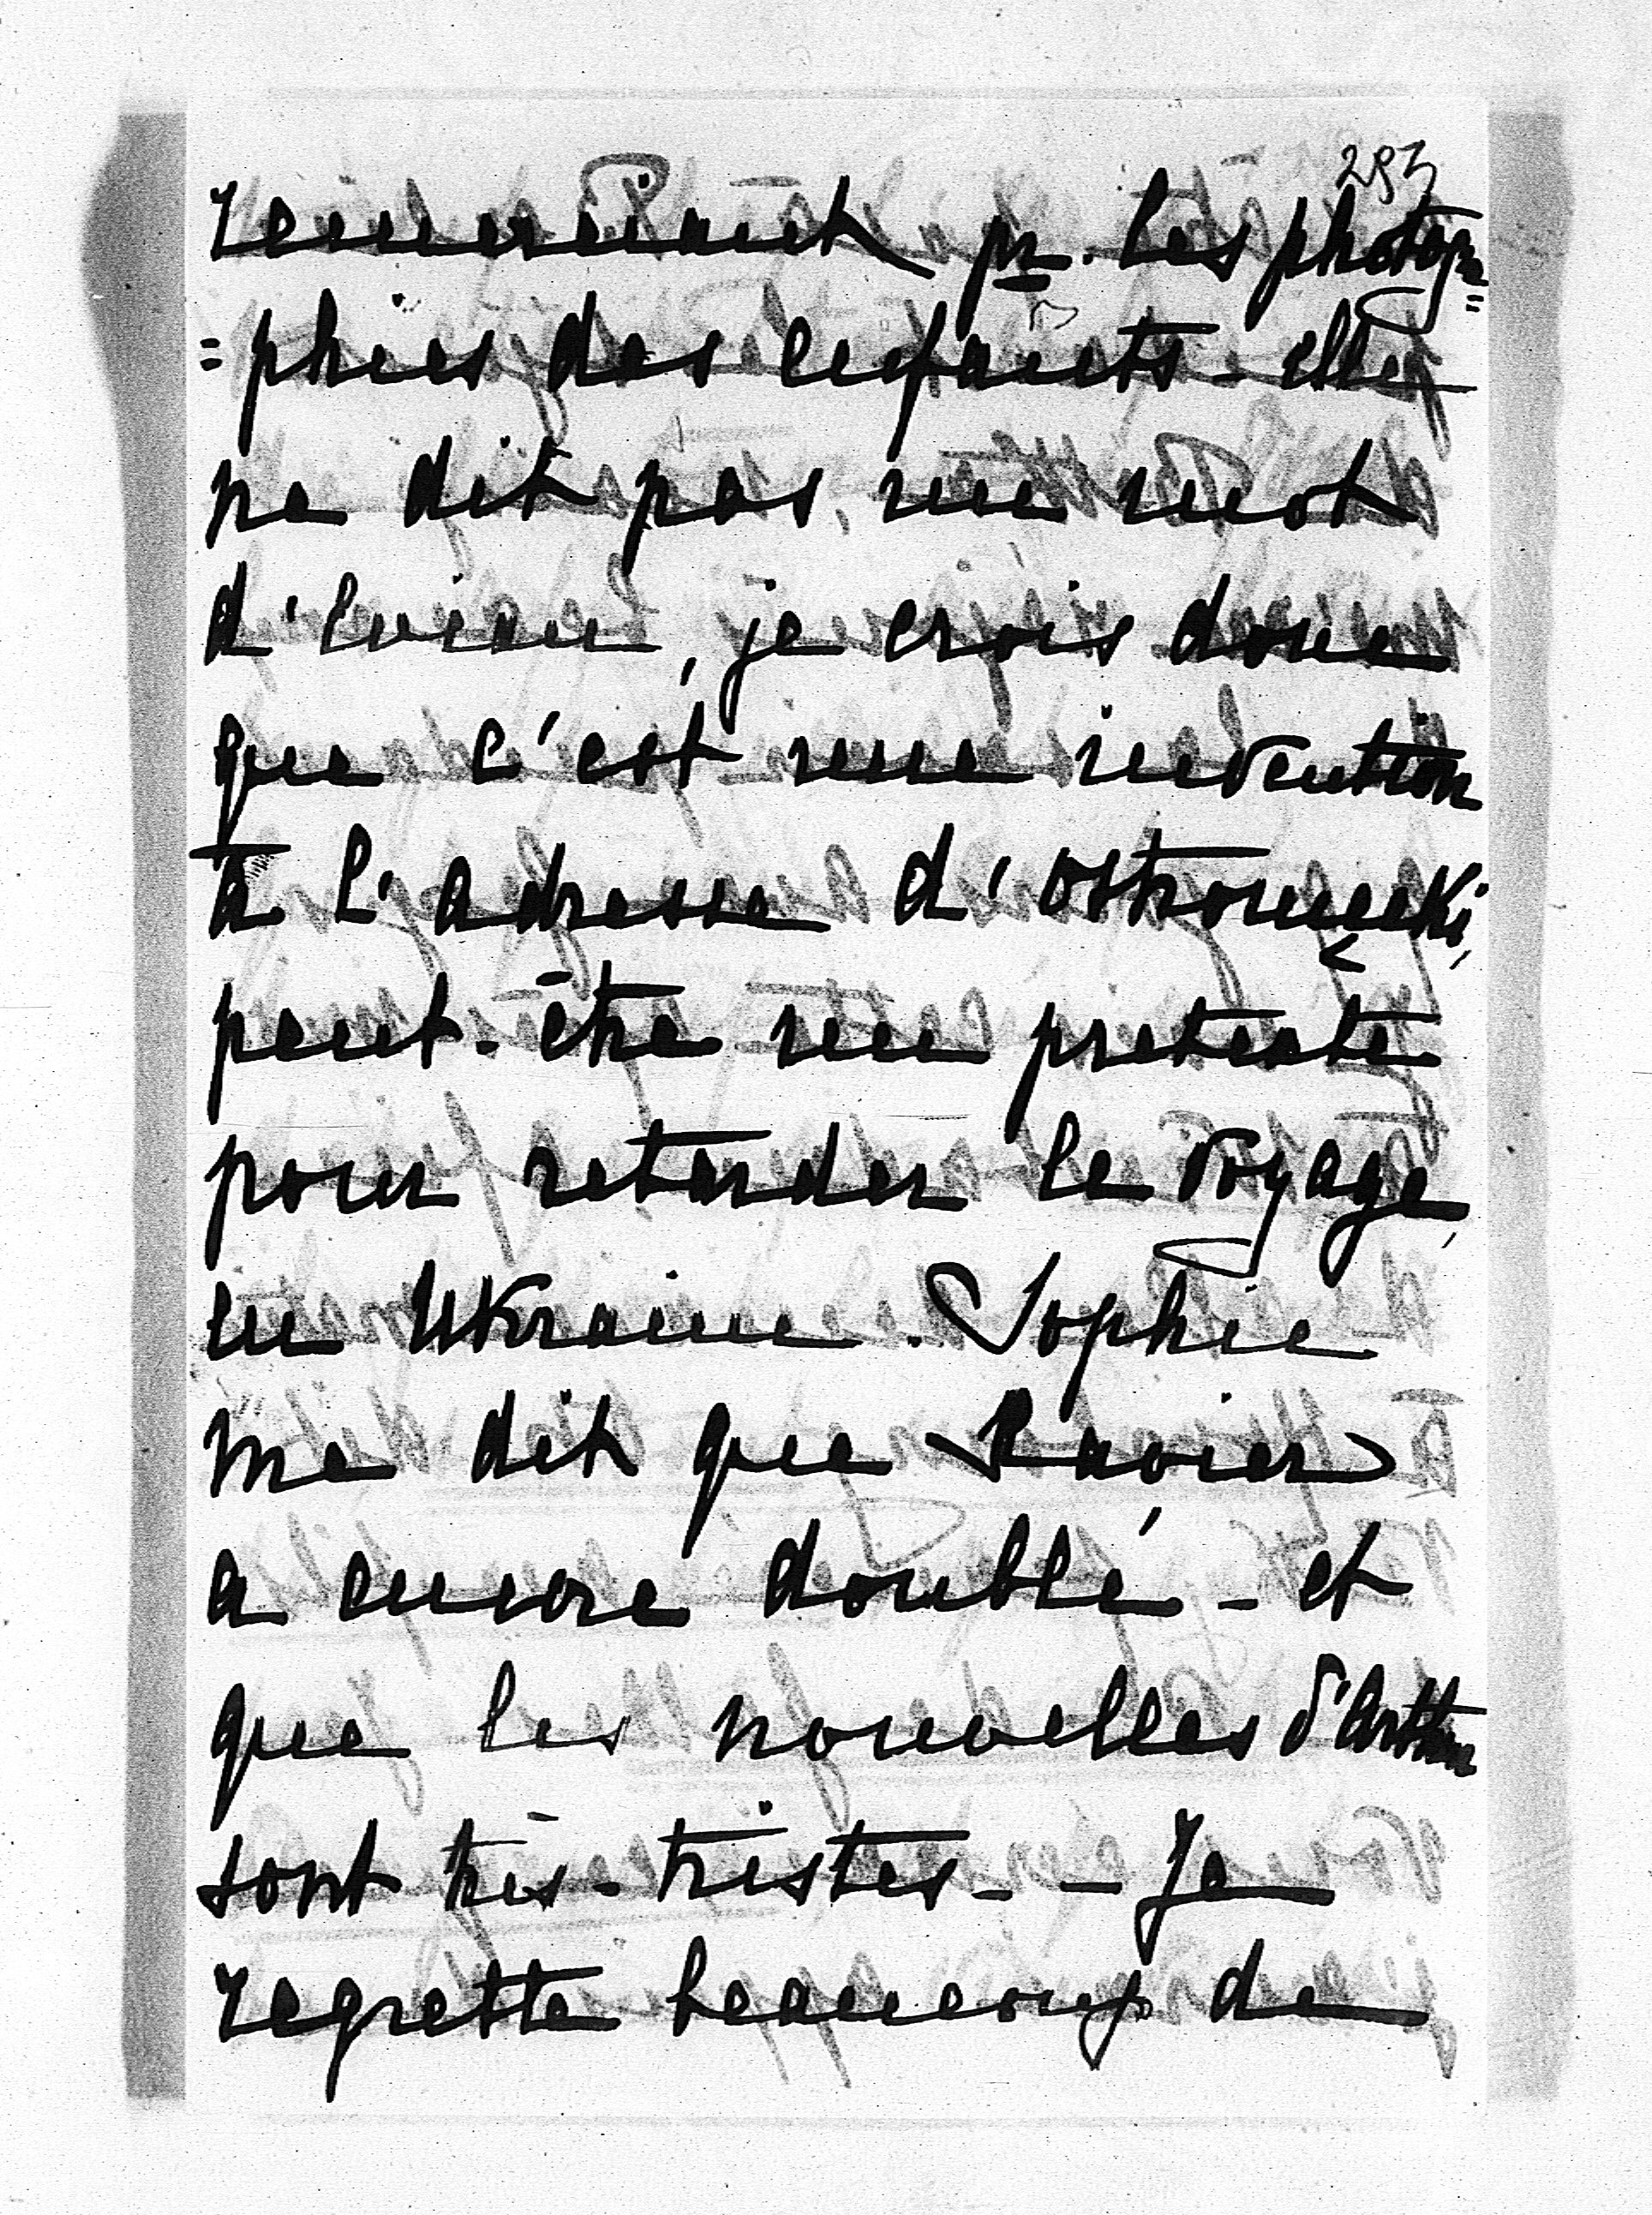 293
remerciant pr. les photogra=
=phies des enfants - elle
ne dit pas un mot
d'Evian, je crois donc
que c'est une invention
à l'adresse d'Ostromęcki,
peut-être un pretexte
pour retarder le voyage,
en Ukraine. Sophie
me dit que Xavier
a encore doublé - et
que les nouvelles d'Arthur
sont très-tristes - - Je
regrette beaucoup de